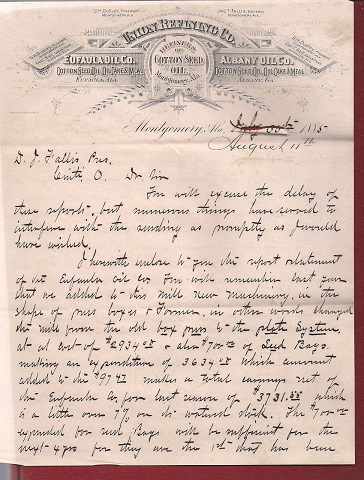 UNION REFINING CO.
REFINERS OF COTTON SEED OIL Montgomery, Ala.
EUFAULA OIL CO.
COTTON SEED OIL, OIL CAKE & MEAL
EUFAULA, ALA.
ALBANY OIL CO.
COTTON SEED OIL, OIL CAKE & MEAL
ALBANY, GA.
Montgomery, Ala. 1885
August 11th
D. J. Fallis Pres.
Cinti O. Dr Sir
You will excuse the delay of
these reports, but numerous things
interfere with the sending as promptly as I would
have wished.
I herewith enclose to you the report & statement
of the Eufaula Oil Co. You will remember last year
that we added to this mill new machinery, in the
shape of press boxes & Former, in other words changed
the mill from the old box press to the plate system,
at a cost of $2934.00 & also $700.00 of Seed Bags
making an expenditure of 3634.00 which amount
added to the $97.47 makes a total earnings net of
the Eufaula Co. for last season of $3731. which
is a little over 7% on its watered stock. The $700.00
expended for seed Bags will be sufficient for the
next 4 yrs for they are the 1st that has been